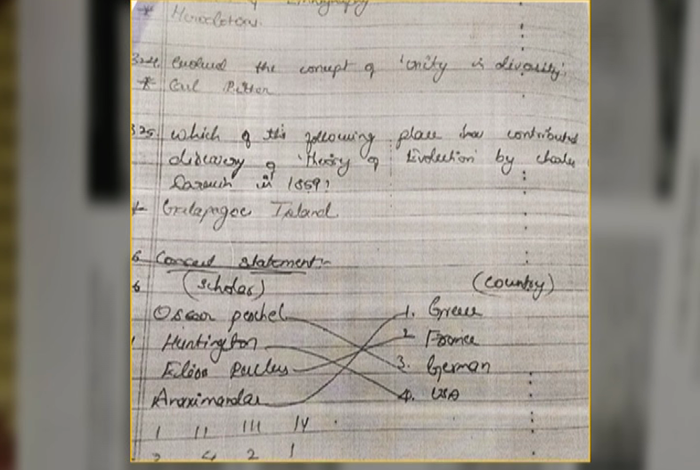 * Herodotus.
324. evolved the concept of 'unity in diversity'
* Carl Ritter
325. which of the following place has contributed
discovery of 'theory of Evolution' by charles
Darwin in 1859?
* Galapagos Island
6 Correct statement:-
6 (Scholar) (Country)
Oscar peschel 1. Greece
Huntington 2 France
3. German
Anaximander 4. USA
I II III IV
3 4 2 1